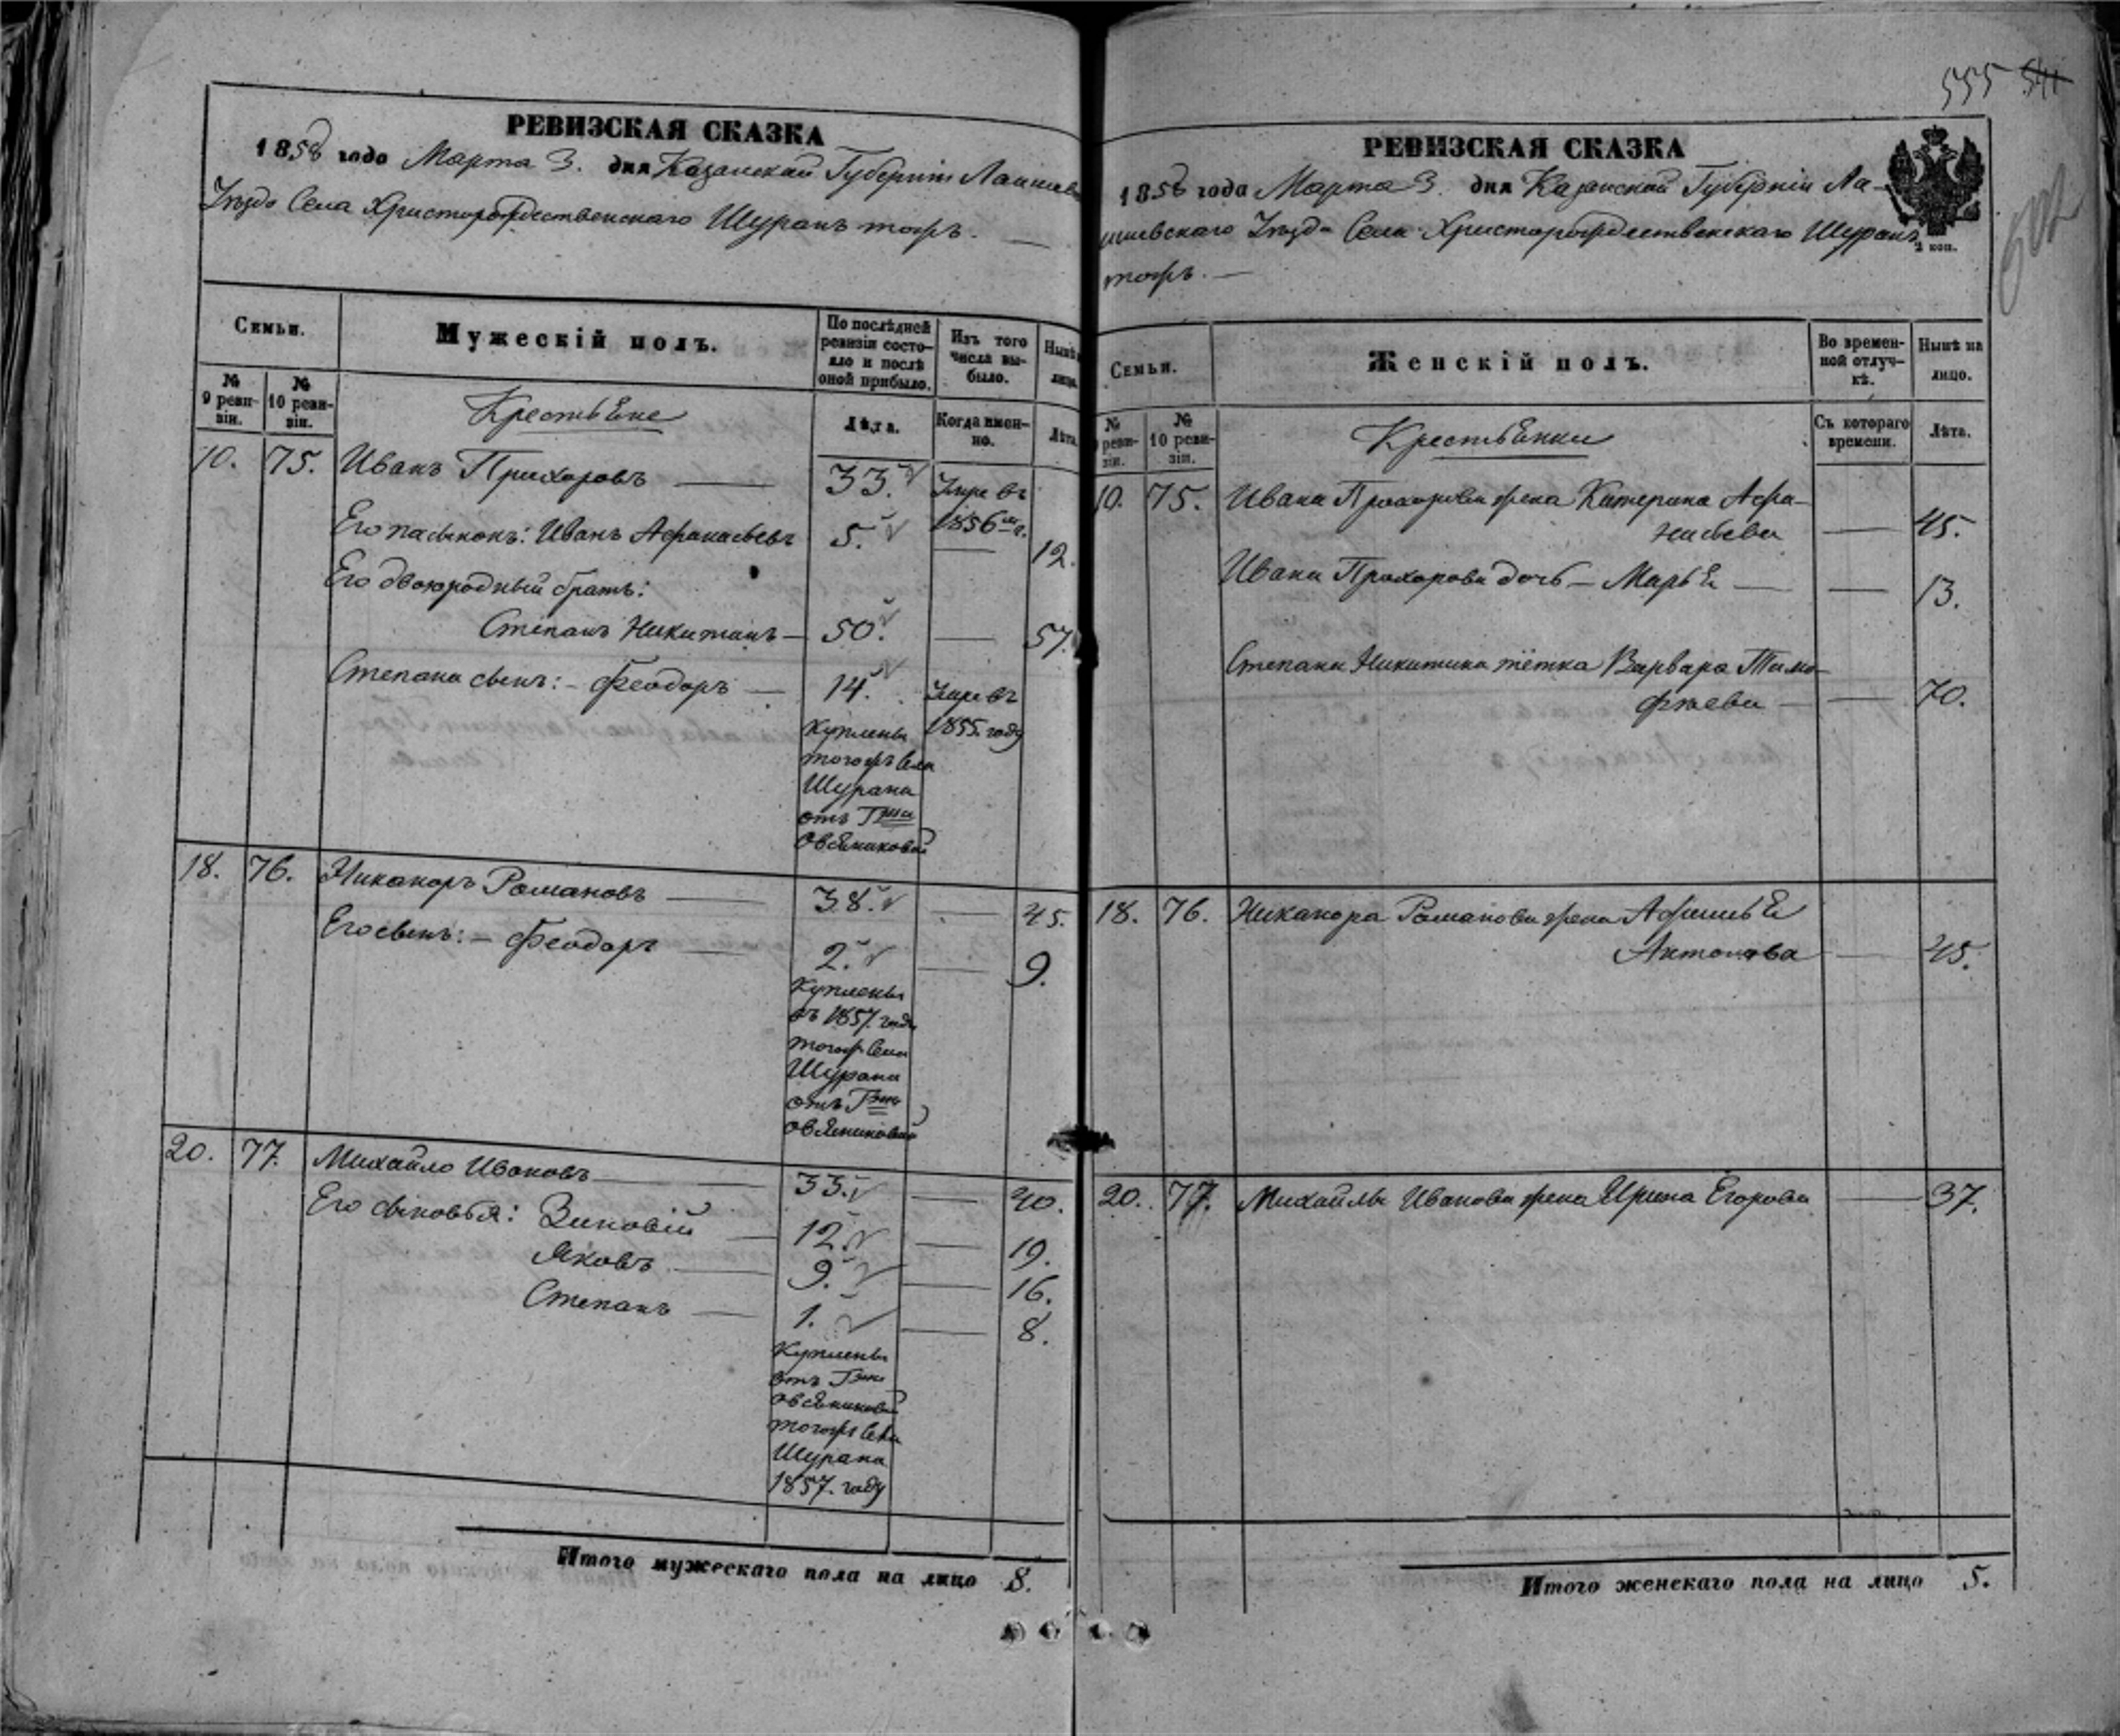 РЕВИЗСКАЯ СКАЗКА
1858 года Марта 3. дня Казанской Губерніи Лаишев
Уѣзда Села Христорождественскаго Шуранъ тожъ. —
Семьи.
Мужескій полъ.
По послѣдней
ревизіи состо-
яло и послѣ
оной прибыло.
Изъ того
числа вы-
было.
Нынѣ
лицо.
№
9 реви-
зіи.
№
10 реви-
зіи.
Крестьяне
Лѣта.
Когда имен-
но.
Лѣта.
10. 75. Иванъ Прохоровъ — 33. Умре въ
1856 м г.
Его пасынокъ: Иванъ Афанасьевъ 5. — 12.
Его двоюродный братъ:
Степанъ Никитинъ — 50. — 57.
Степана сынъ: — Феодоръ — 14. Умре въ
1855. году
Куплены
тогожъ Села
Шурана
отъ Гжи
Овсяниковой
18. 76. Никаноръ Романовъ — 38. — 45.
Его сынъ: — Феодоръ — 2. — 9.
Куплены
въ 1857. году
тогожъ Села
Шурана
отъ Гжи
Овсяниковой
20. 77. Михайло Ивановъ — 33. — 40.
Его сыновья: Зиновій — 12. — 19.
Яковъ — 9. — 16.
Степанъ — 1. — 8.
Куплены
отъ Гжи
Овсяниковой
тогожъ Села
Шурана
1857. году
Итого мужескаго пола на лицо 8.
555 541
РЕВИЗСКАЯ СКАЗКА
1858 года Марта 3. дня Казанской Губерніи Ла-
ишевскаго Уѣзда Села Христорождественскаго Шуранъ
тожъ. —
коп.
Семьи.
Женскій полъ.
Во времен-
ной отлуч-
кѣ.
Нынѣ на
лицо.
№
реви-
зіи.
№
10 реви-
зіи.
Крестьянки
Съ котораго
времени.
Лѣта.
10. 75. Ивана Прохорова жена Катерина Афа-
насьева — 45.
Ивана Прохорова дочь — Марья — — 13.
Степана Никитина тётка Варвара Тимо-
фѣева — — 70.
18. 76. Никанора Романова жена Афимья
Антонова — 45.
20. 77. Михайлы Иванова жена Ирина Егорова — 37.
Итого женскаго пола на лицо 5.